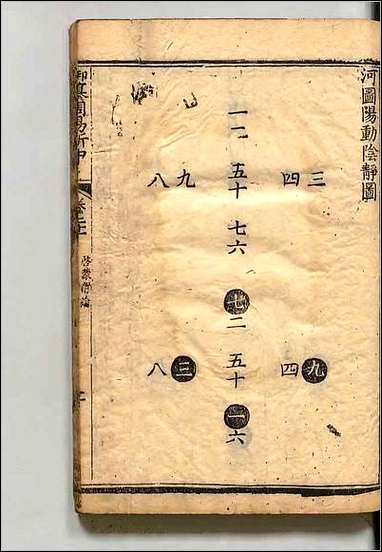 河圖陽動陰靜圖
三 九
四 四
一二 五十 七六 七二 五十 一六
九 三
八 八
御纂周易折中
啓蒙附論